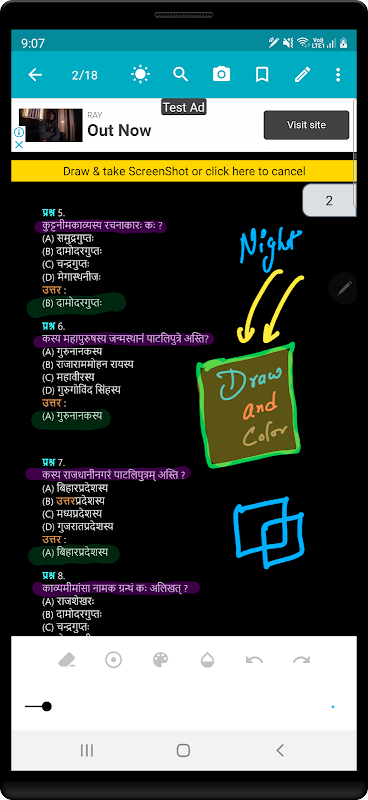 9:07
Vo)) LTE1
2/18
Test Ad
RAY
Out Now
Visit site
Draw & take ScreenShot or click here to cancel
2
प्रश्न 5.
कुट्टनीमकाव्यस्य रचनाकारः कः ?
(A) समुद्रगुप्तः
(B) दामोदरगुप्तः
(C) चन्द्रगुप्तः
(D) मेगास्थनीजः
उत्तर :
(B) दामोदरगुप्तः
Night
प्रश्न 6.
कस्य महापुरुषस्य जन्मस्थानं पाटलिपुत्रे अस्ति?
(A) गुरुनानकस्य
(B) राजाराममोहन रायस्य
(C) महावीरस्य
(D) गुरुगोविंद सिंहस्य
उत्तर :
(A) गुरुनानकस्य
Draw
and
Color
प्रश्न 7.
कस्य राजधानीनगरं पाटलिपुत्रम् अस्ति ?
(A) बिहारप्रदेशस्य
(B) उत्तरप्रदेशस्य
(C) मध्यप्रदेशस्य
(D) गुजरातप्रदेशस्य
उत्तर :
(A) बिहारप्रदेशस्य
प्रश्न 8.
काव्यमीमांसा नामक ग्रन्थं कः अलिखत् ?
(A) राजशेखरः
(B) दामोदरगुप्तः
(C) चन्द्रगुप्तः